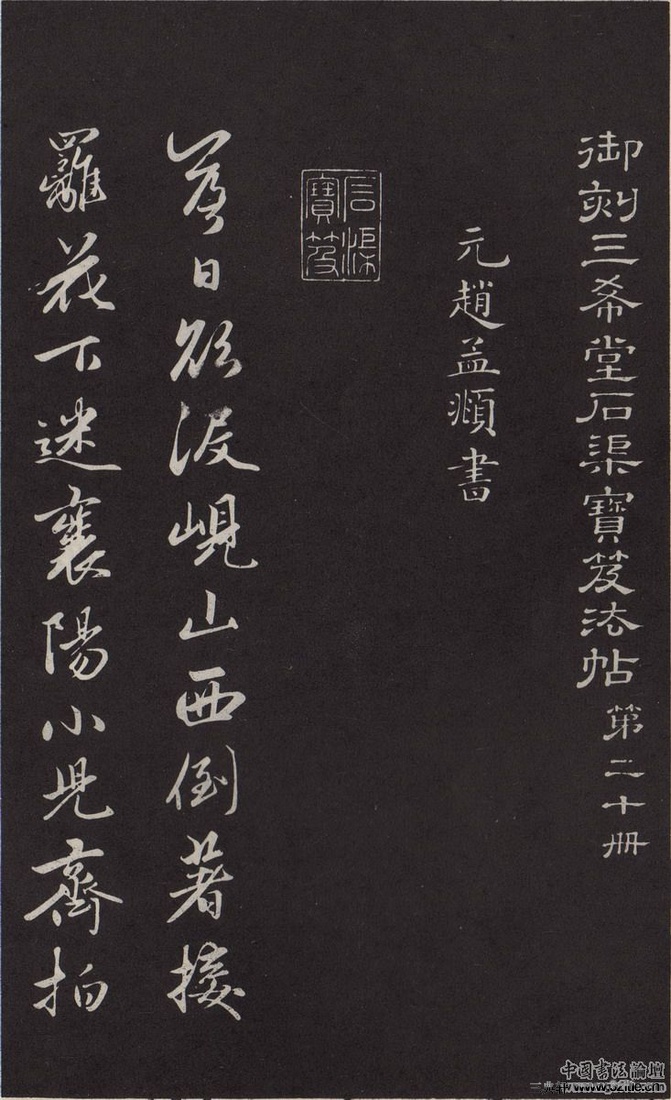 御刻三希堂石渠寶笈法帖 第二十冊
元趙孟頫書
石渠寶笈
落日欲没峴山西倒著接
䍦花下迷襄陽小兒齊拍
中國書法論壇